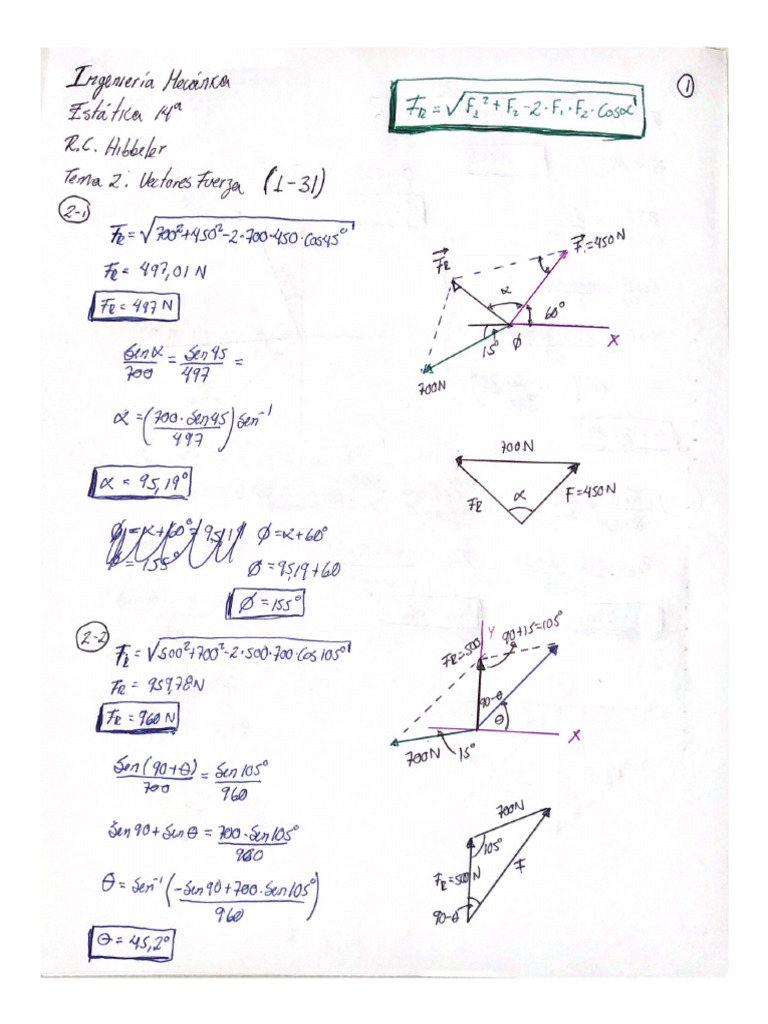 Ingeniería Mecánica
Estática 14ª
R.C. Hibbeler
Tema 2: Vectores Fuerza (1-31)
FR = √F₁² + F₂ - 2·F₁·F₂·Cosα
1
2-1
FR = √700²+450²-2·700·450·Cos45°
FR = 497,01 N
FR = 497 N
Senα/700 = Sen45/497 =
α = (700·Sen45/497) Sen⁻¹
α = 95,19°
Ø = α+60° = 95,19 Ø = α+60°
Ø = 155° Ø = 95,19+60
Ø = 155°
FR
F=450N
α
60°
15°
Ø
X
700N
700N
FR
α
F=450N
2-2
FR = √500²+700²-2·500·700·Cos105°
FR = 959,78N
FR = 960 N
Sen(90+θ)/700 = Sen105°/960
Sen90+Senθ = 700·Sen105°/960
θ = Sen⁻¹(-Sen90+700·Sen105°/960)
θ = 45,2°
Y
90+15=105°
FR=500
90-θ
θ
X
700N
15°
700N
105°
FR=500N
F
90-θ